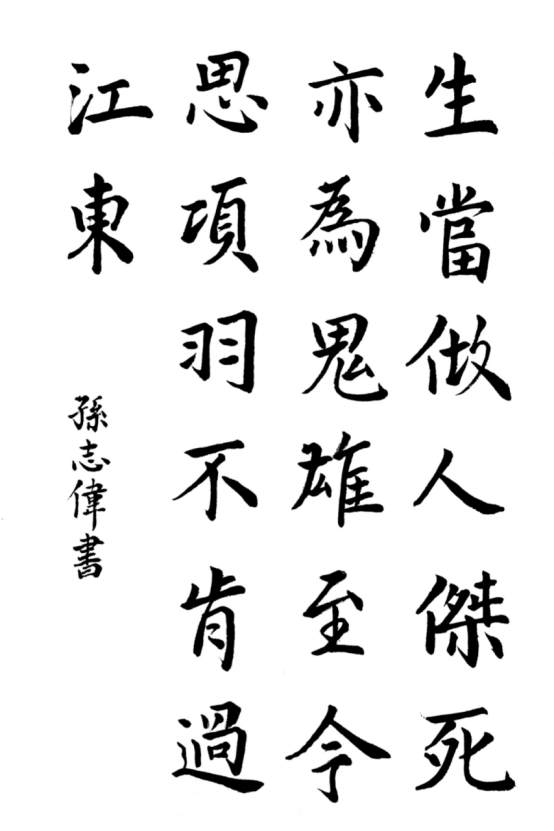 生當做人傑死
亦為鬼雄至今
思項羽不肯過
江東
孫志偉書